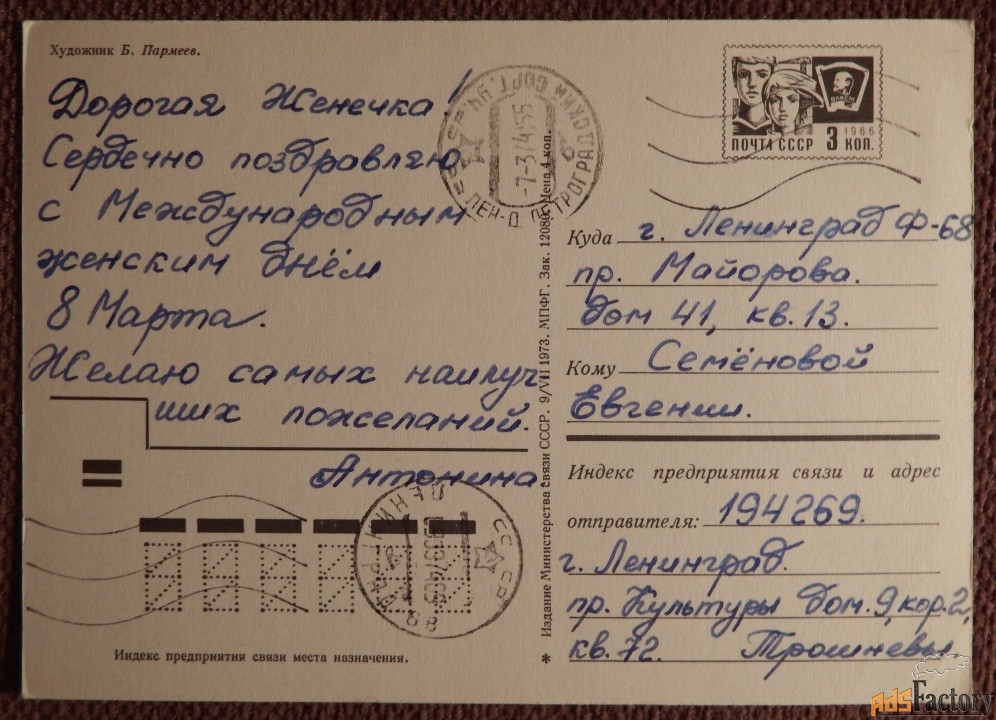 Художник Б. Пармеев.
Дорогая Женечка!
Сердечно поздравляю
с Международным
женским днём
8 Марта.
Желаю самых наилуч-
ших пожеланий.
Антонина
Индекс предприятия связи места назначения.
Издание Министерства связи СССР. 9/VII 1973. МПФГ. Зак. 12080. Цена 4 коп.
ПОЧТА СССР 3 КОП.
1966
ВЛКСМ
Куда г. Ленинград Ф-68
пр. Майорова.
дом 41, кв. 13.
Кому Семёновой
Евгении.
Индекс предприятия связи и адрес
отправителя: 194269.
г. Ленинград.
пр. Культуры дом. 9, кор. 2,
кв. 72. Трошневы
ЛЕНИНГРАД
СССР
AdsFactory